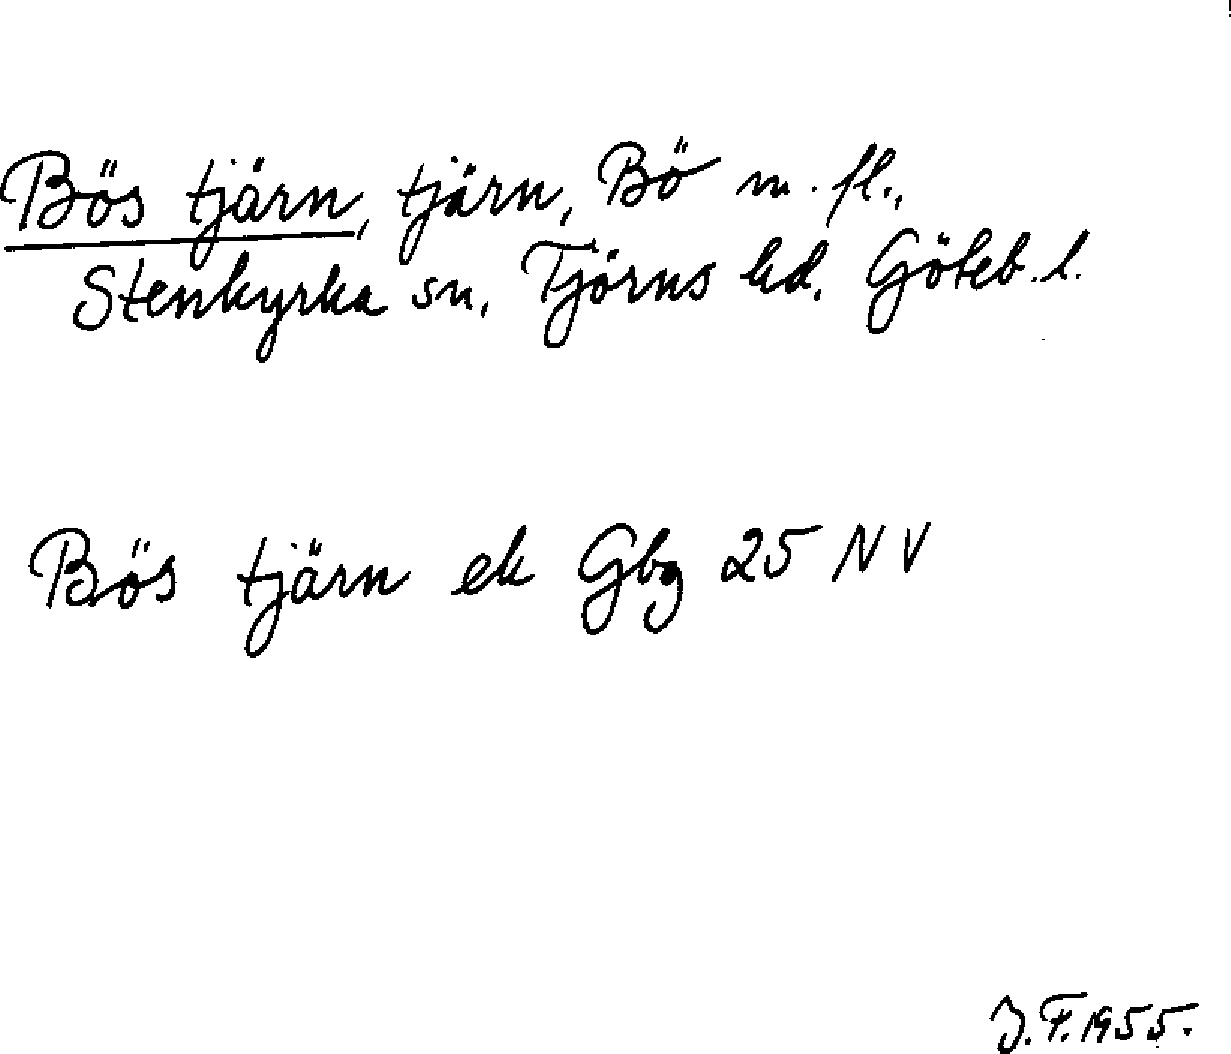 Bös tjärn, tjärn, Bö m. fl.,
Stenkyrka sn, Tjörns hd, Göteb. l.
Bös tjärn ek Gbg 25 NV
J. F. 1955.